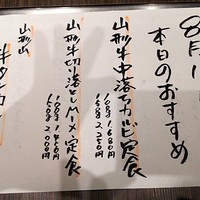 8月1
本日のおすすめ
山形牛中落ちカルビ定食
100g 1.680円
150g 2.250円
山形牛切り落としMIX定食
100g 1.450円
150g 2.000円
山形